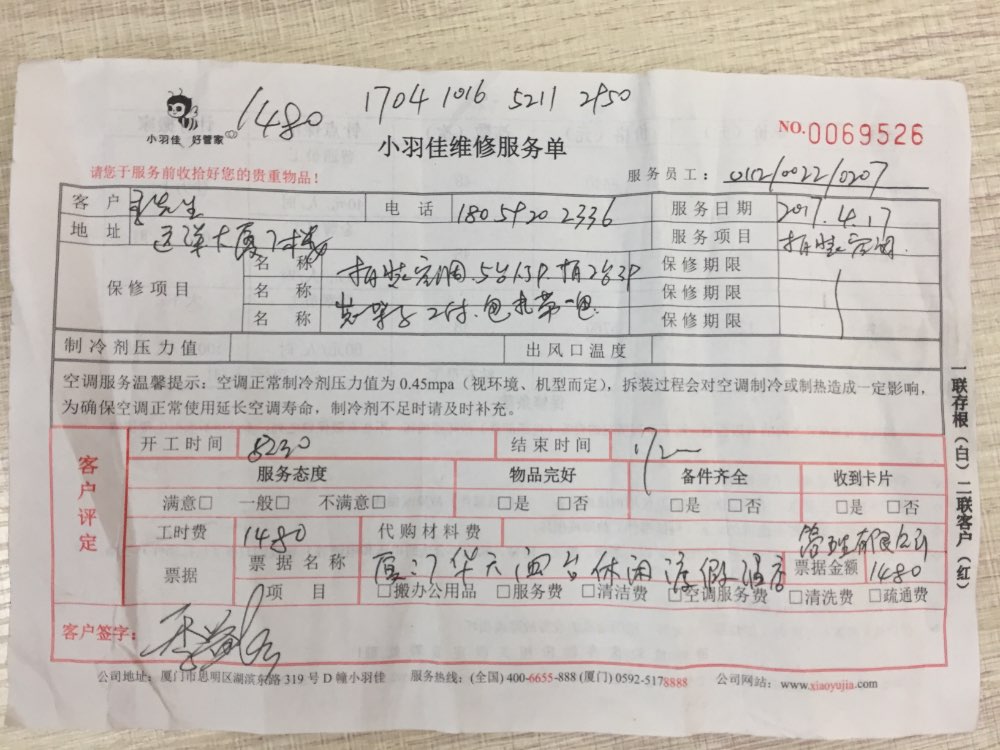 1480
1704 1016 5211 2950
小羽佳 好管家
小羽佳维修服务单
NO.0069526
请您于服务前收拾好您的贵重物品！
服务员工： 0112/0022/0207
客户 王先生 电话 180 5920 2336 服务日期 2017.4.17
地址 远洋大厦 服务项目 拆装空调
保修项目
名称 拆装空调.5台1.5P.拆2台3P 保修期限
名称 装架子2付.包扎带一包 保修期限
名称 保修期限
制冷剂压力值 出风口温度
空调服务温馨提示：空调正常制冷剂压力值为 0.45mpa（视环境、机型而定），拆装过程会对空调制冷或制热造成一定影响，
为确保空调正常使用延长空调寿命，制冷剂不足时请及时补充。
一联存根（白）二联客户（红）
客户评定
开工时间 8230 结束时间
服务态度 物品完好 备件齐全 收到卡片
满意□ 一般□ 不满意□ □是 □否 □是 □否 □是 □否
工时费 1480 代购材料费
票据 票据名称 厦门华天酒台休闲渡假酒店管理有限公司 票据金额 1480
项目 □搬办公用品 □服务费 □清洁费 □空调服务费 □清洗费 □疏通费
客户签字：
公司地址：厦门市思明区湖滨东路 319 号 D 幢小羽佳 服务热线：(全国) 400-6655-888 (厦门) 0592-5178888 公司网站：www.xiaoyujia.com